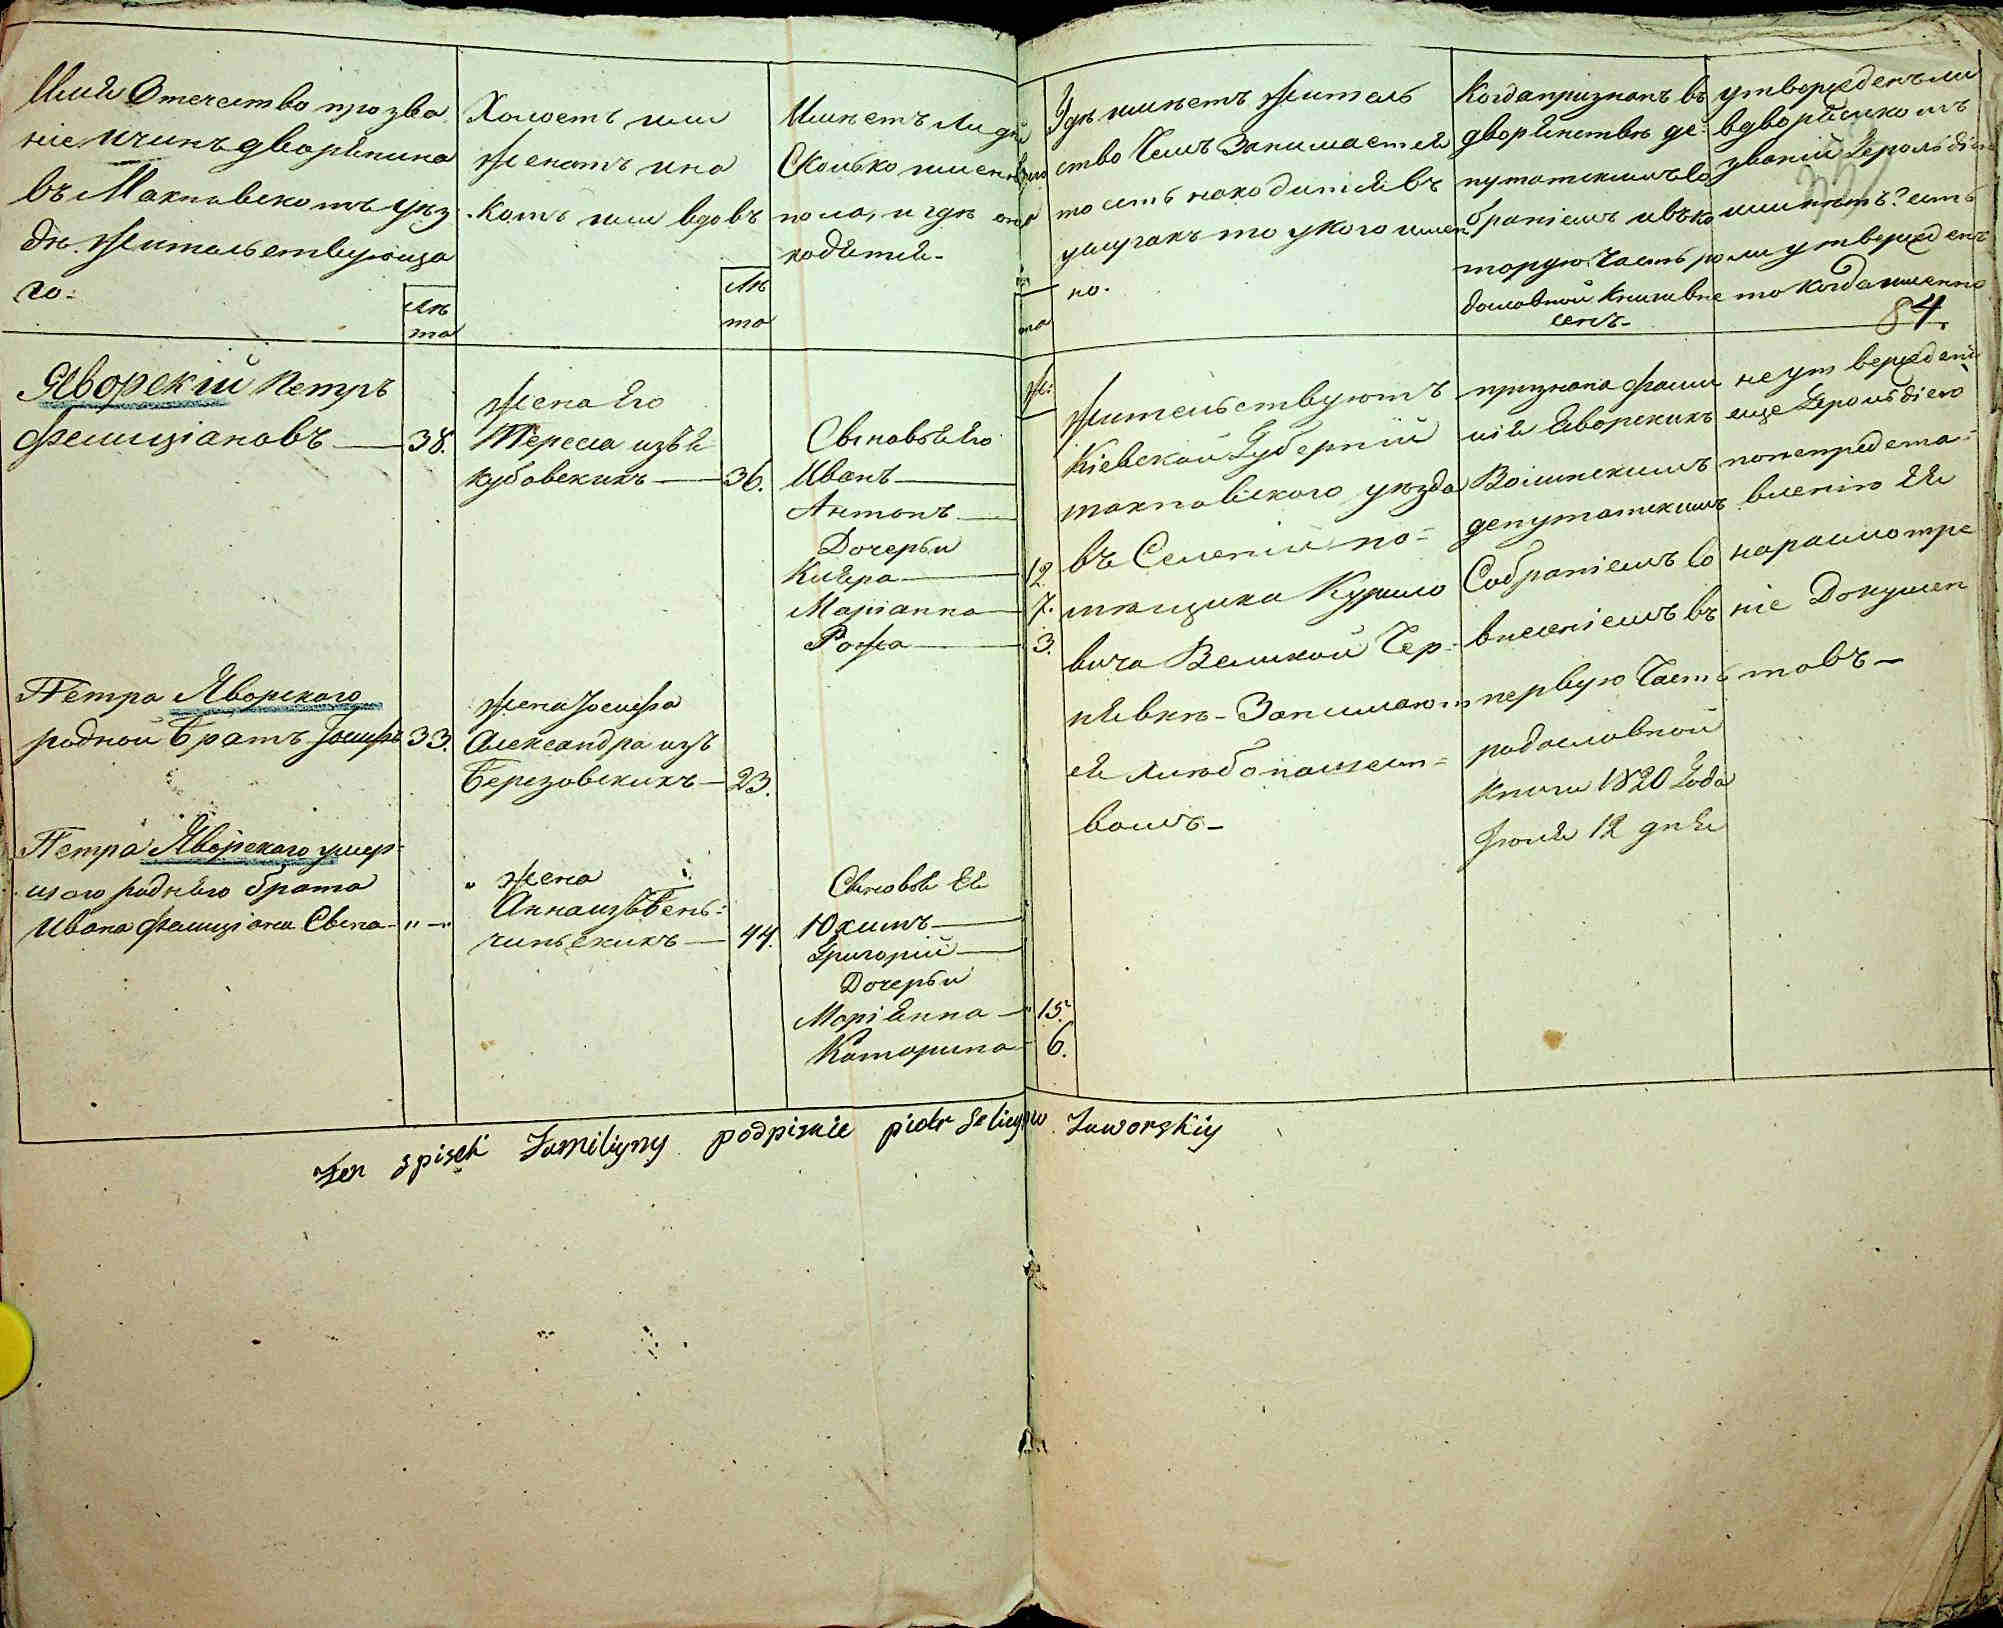 Имя Отечество прозва
ніе и чинъ дворянина
въ Махновскомъ уѣз
дѣ жительствующа
го:
лѣ
та
Холостъ или
женатъ и на
комъ или вдовъ
лѣ
та
Имѣетъ ли дѣ
Сколько именъ
пола, и гдѣ они
ходятся-
та
Гдѣ имѣетъ житель
ство Чемъ Занимается
то есть находится въ
услугахъ то у кого имен
но.
Когда признанъ въ
дворянствѣ де:
путатскимъ Со
браніемъ и въ ко
торую Часть ро
дословной Книги вне
сенъ-
утвержденъ ли
въ дворянскомъ
званіи Герольдіею
или нѣтъ? есть
ли утвержденъ
то когда именно
84.
Яворскій Петръ
Фелиціановъ 38.
жена Его
Тереса изъ Я
кубовскихъ 36.
Сыновья Его
Иванъ
Антонъ
Дочеръи
Кляра 12
Маріанна 7.
Рожа 3.
же:
жительствуютъ
Кіевской Губерніи
махновского уѣзда
въ Селеніи по-
мѣщика Курило
вича Великой Чер-
нявкѣ- Занимают
ся хлѣбопашест-
вомъ-
признана фами
лія Яворскихъ
Волынскимъ
депутатскимъ
Собраніемъ со
внесеніемъ въ
первую Часть
родословной
книги 1820 Года
Июля 12 дня
не утверждены
еще Герольдіею
по непредста-
вленію Ея
на разсмотре
ніе Докумен
товъ-
Петра Яворского
родной Братъ Іосифъ 33.
жена Іосифа
Александра изъ
Березовскихъ 23.
Петра Яворского умер-
шого родного брата
Ивана Фелиціана Сына " - "
" жена
Анна изъ Бень-
чиньскихъ 44.
Сыновья Ея
Юхимъ
Григорій
Дочеръи
Маріянна 15.
Катарина 6.
Ten spisek Familiyny podpisuie piotr Felicyow Jaworskiy